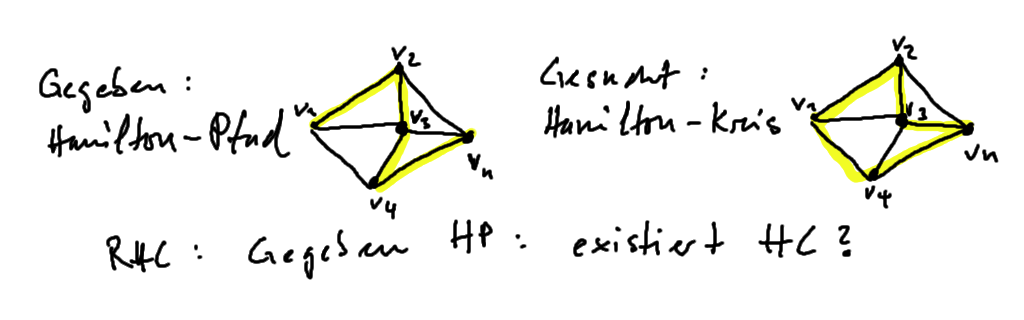 Gegeben:
Hamilton-Pfad
v1
v2
v3
v4
vn
Gesucht:
Hamilton-Kreis
v1
v2
v3
v4
vn
RHC: Gegeben HP: existiert HC?